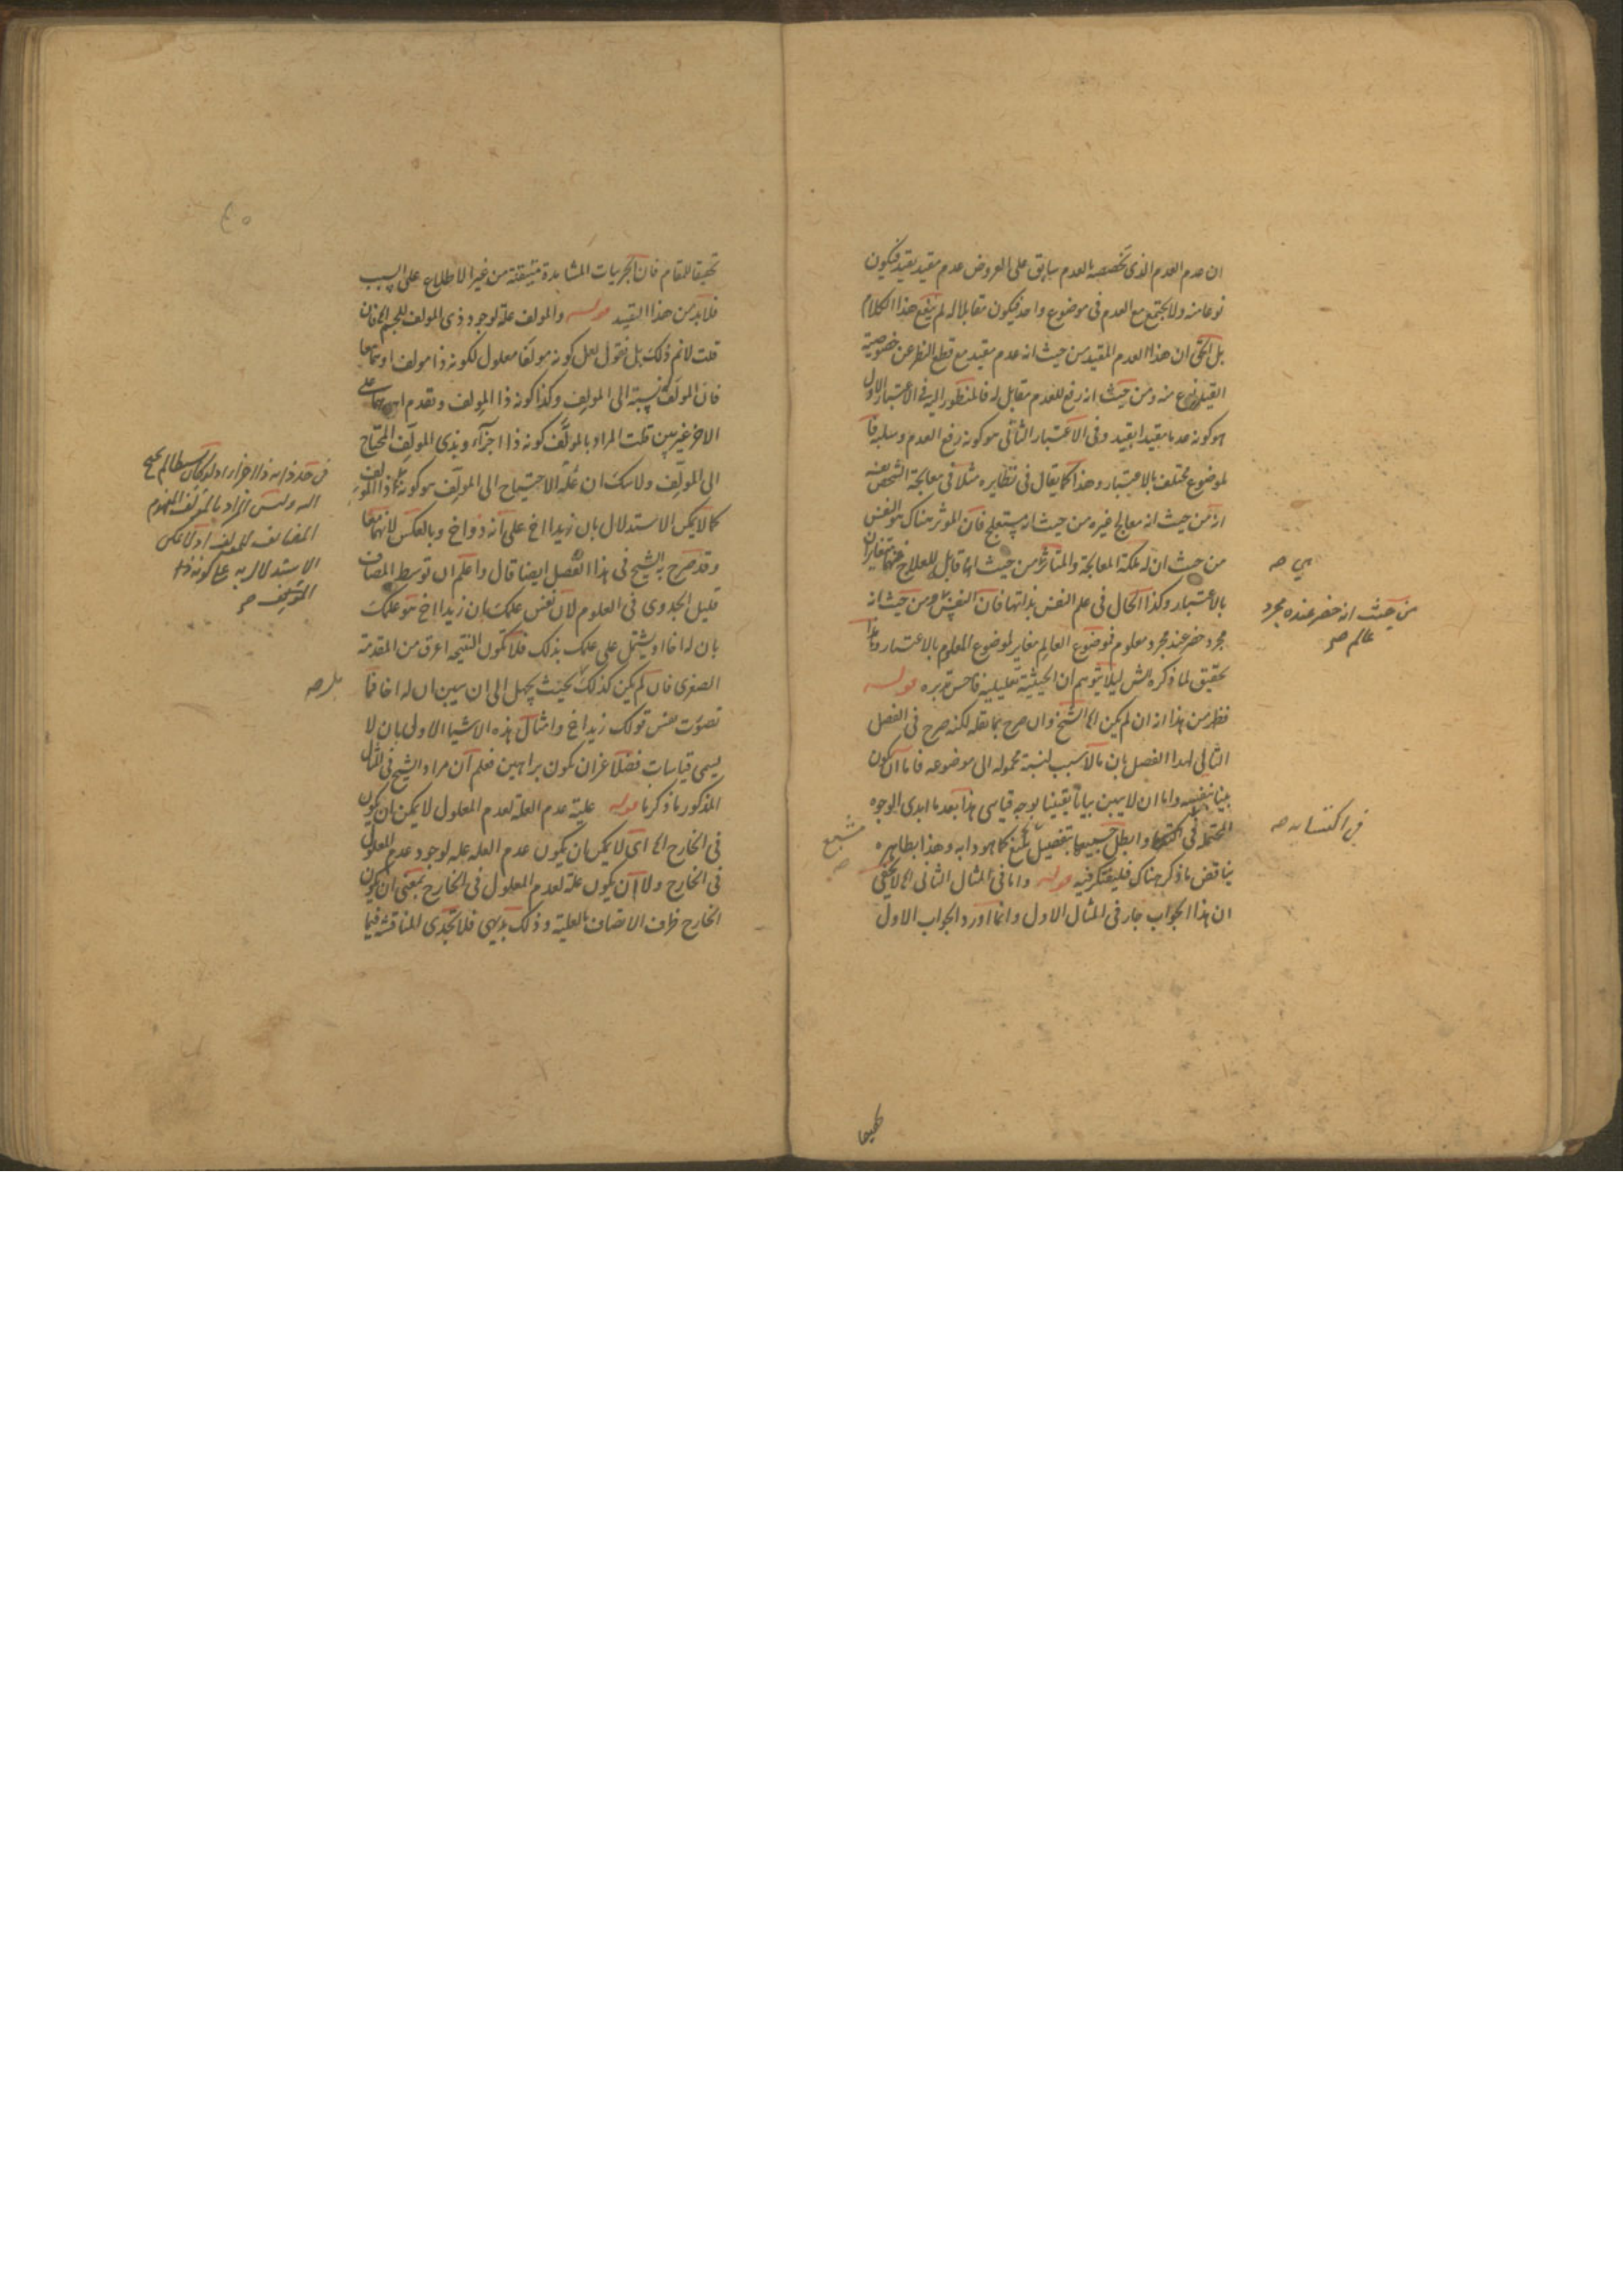 ان عدم العدم الذى تخصصه بالعدم سابق على العروض عدم مقيد بقيد فيكون
نوعا منه ولا يجتمع مع العدم فى موضوع واحد فيكون مقابلا له لم ينفع هذا الكلام
بل الحق ان هذا العدم المقيد من حيث انه عدم مقيد مع قطع النظر عن خصوصية
القيد نوع منه ومن حيث انه رفع للعدم مقابل له فالمنظور اليه فى الاعتبار الاول
هو كونه عدما مقيدا بقيد وفى الاعتبار الثانى هو كونه رفع العدم وسلبه
لموضوع مختلف بالاعتبار وهذا كما يقال فى نظايره مثلا فى معالجة الشخص نفسه
انه من حيث انه معالج غيره من حيث انه يستعلج فان الموثر هناك هو النفس
من حيث ان له ملكة المعالجة والمتاثر من حيث انها قابل للعلاج فهما متغايران
بالاعتبار وكذا الحال فى علم النفس بذاتها فان النفس من حيث انه
مجرد حضر عنده مجرد معلوم فموضوع العالم مغاير لموضوع المعلوم بالاعتبار وهذا
تحقيق لما ذكره الش ليلا يتوهم ان الحيثية تعليلية فاحسن تدبره قوله
فظهر من هذا انه ان لم يكن الخ الشيخ وان صرح بما نقله لكنه صرح فى الفصل
التالى لهذا الفصل بان ما لا سبب لنسبة محموله الى موضوعه فاما ان يكون
بينا بنفسه واما ان لا يبين بيانا يقينيا بوجه قياسى هذا بعد ما ابدى الوجوه
المحتملة فى اكتسابه وابطل جميعها بتفصيل مشبع كما هو دابه وهذا بظاهره
يناقض ما ذكر هناك فليتفكر فيه قوله واما فى المثال الثانى الخ لا يخفى
ان هذا الجواب جار فى المثال الاول وانما اورد الجواب الاول
هى صه
من حيث انه حضر عنده مجرد
عالم صح
فى اكتسابه صه
مشبع
صه
تحقيقا
تحقيقا للمقام فان التجربيات المشاهدة متيقنة من غير الاطلاع على السبب
فلا بد من هذا القيد قوله والمولف علة لوجود ذى المولف للجسم الخ فان
قلت لانم ذلك بل نقول لعل كونه مولفا معلول لكونه ذا مولف او هما معا
فان المولف نسبة الى المولف وكذا كونه ذا المولف وتقدم ايهما على
الاخر غير بين قلت المراد بالمولف كونه ذا اجزاء وبذى المولف المحتاج
الى المولف ولا شك ان علة الاحتياج الى المولف هو كونه ذا المولف
كما لا يمكن الاستدلال بان زيدا اخ على انه ذو اخ وبالعكس لانهما معا
وقد صرح به الشيخ فى هذا الفصل ايضا قال واعلم ان توسط المضاف
قليل الجدوى فى العلوم لان نفس علمك بان زيدا اخ هو علمك
بان له اخا او يشتمل على علمك بذلك فلا تكون النتيجة اعرف من المقدمة
الصغرى فان لم يكن كذلك بحيث يجهل الى ان يبين ان له اخا فما
تصورت نفس قولك زيد اخ وامثال هذه الاشيا الاولى بان لا
يسمى قياسات فضلا عن ان تكون براهين فعلم ان مراد الشيخ فى المثال
المذكور ما ذكرنا قوله علية عدم العلة لعدم المعلول لا يمكن ان يكون
فى الخارج الخ اى لا يمكن ان يكون عدم العله علة لوجود عدم المعلول
فى الخارج ولا ان يكون علة لعدم المعلول فى الخارج بمعنى ان يكون
الخارج ظرف الاتصاف بالعلية وذلك بديهى فلا تجدى المناقشة فيما
فى حد ذاته ذا اجزاء
اليه وليس المراد بالمولف المفهوم
المضايف للمولف اذ لا يمكن
الاستدلال به على كونه ذا
المولف صح
بل صه
٤٥